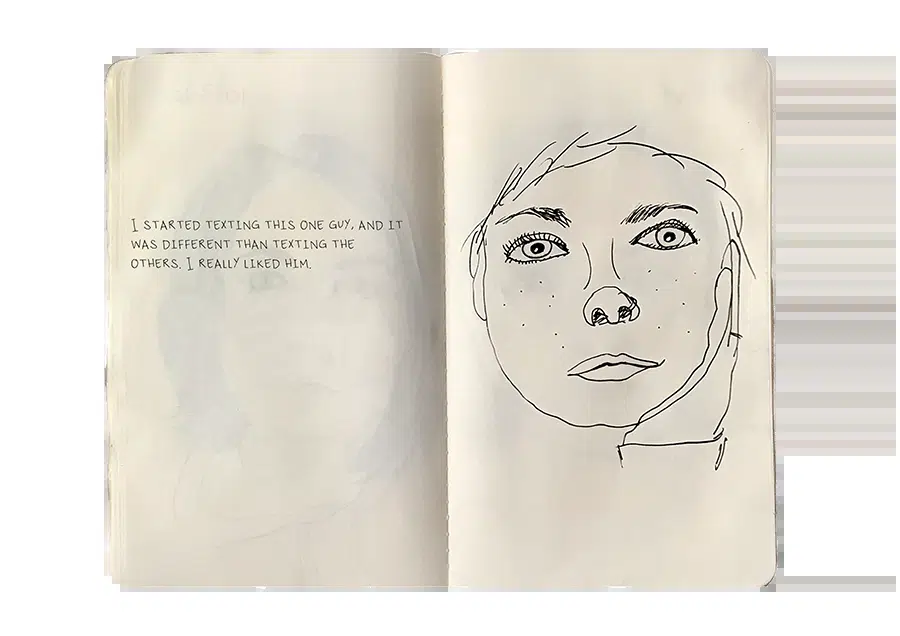 I STARTED TEXTING THIS ONE GUY, AND IT
WAS DIFFERENT THAN TEXTING THE
OTHERS. I REALLY LIKED HIM.